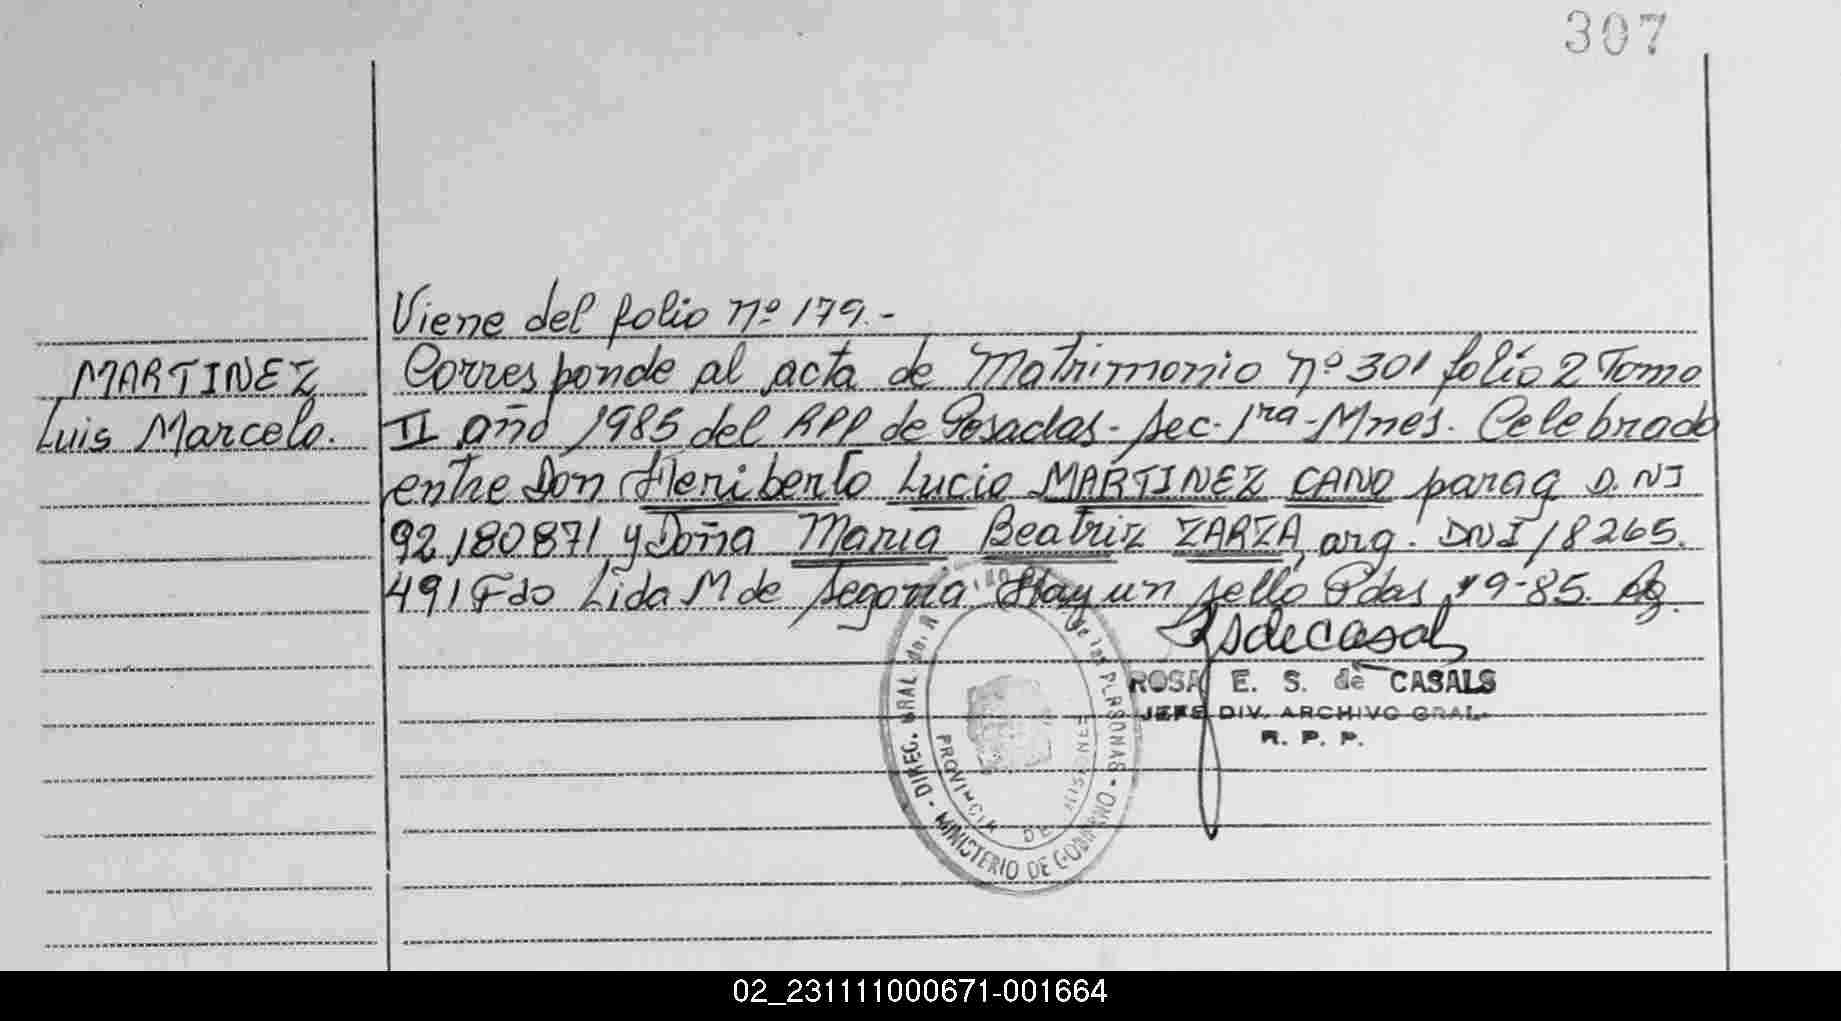 307
Viene del folio nº 179.-
MARTINEZ
Luis Marcelo.
Corresponde al acta de Matrimonio nº 301 folio 2 Tomo
II año 1985 del RPP de Posadas - sec. 1ra - Mnes. Celebrado
entre Don Heriberto Lucio MARTINEZ CANO parag D.NI
92,180871 y Doña Maria Beatriz ZARZA, arg. DNI 18265.
491 Fdo Lida M de Segovia Hay un sello Pdas 9-85.
ROSA E. S. de CASALS
JEFE DIV. ARCHIVO GRAL.
R. P. P.
DIREC. GRAL de las PERSONAS - MINISTERIO DE GOBIERNO -
PROVINCIA DE MISIONES
02_231111000671-001664